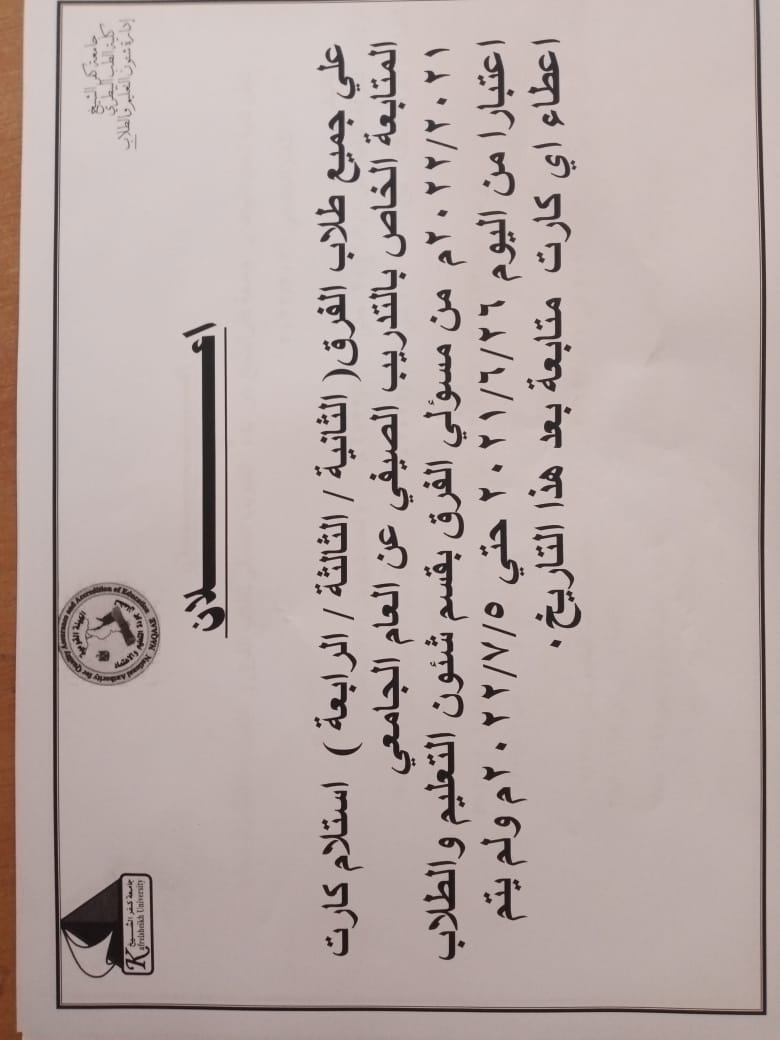 جامعة كفر الشيخ
كلية الطب البيطري
إدارة شئون التعليم والطلاب
National Authority for Quality Assurance and Accreditation of Education
NAQAAE
جامعة كفر الشيخ
Kafrelsheikh University
اعـــــــــلان
علي جميع طلاب الفرق( الثانية / الثالثة / الرابعة ) استلام كارت
المتابعة الخاص بالتدريب الصيفي عن العام الجامعي
٢٠٢٢/٢٠٢١م من مسؤلي الفرق بقسم شئون التعليم والطلاب
اعتبارا من اليوم ٢٠٢١/٦/٢٦ حتي ٢٠٢٢/٧/٥م ولم يتم
اعطاء اي كارت متابعة بعد هذا التاريخ.